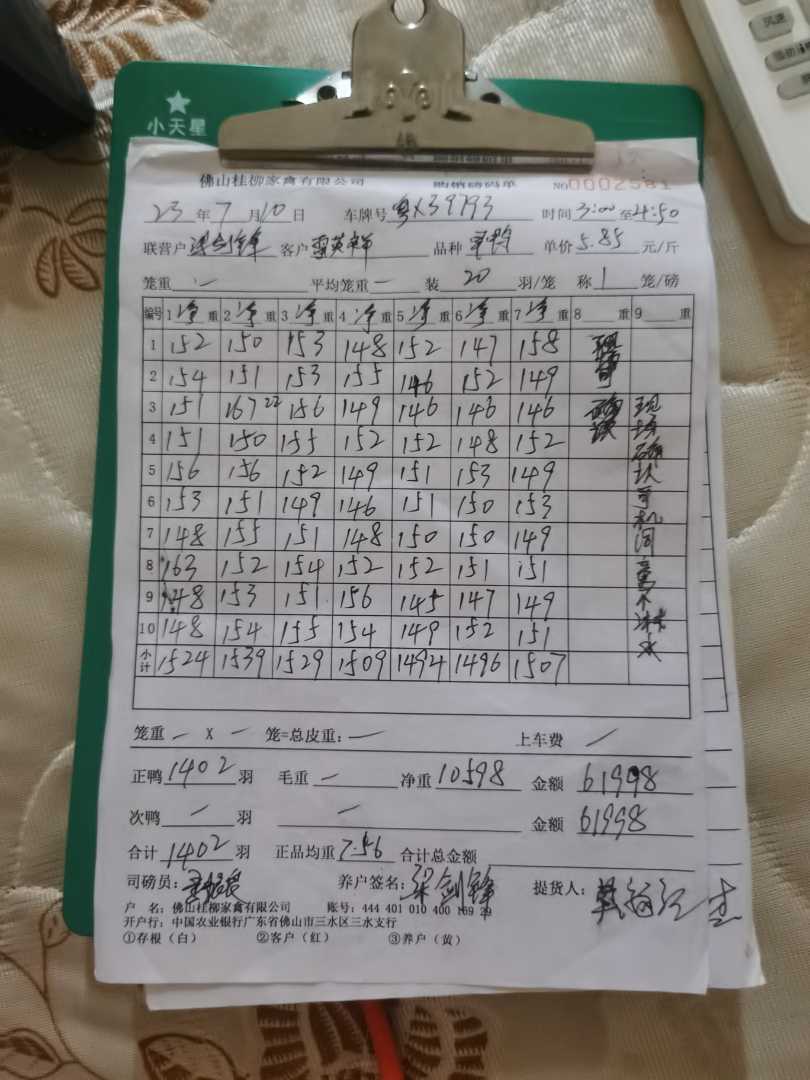 风速
小天星
佛山桂柳家禽有限公司 购销磅码单 NO 0002581
23年7月10日 车牌号 粤X39793 时间3:00至4:50
联营户 梁剑锋 客户 品种 单价5.85元/斤
笼重 — 平均笼重 — 装 20 羽/笼 称 1 笼/磅
编号 1净重 2净重 3净重 4净重 5净重 6净重 7净重 8 重 9 重
1 152 150 153 148 152 147 158 现场
2 154 151 153 155 146 152 149
3 151 167 22 156 149 146 146 146 确 现
4 151 150 155 152 152 148 152 认 场
5 156 156 152 149 151 153 149 确认
6 153 151 149 146 151 150 153 司
7 148 155 151 148 150 150 149 机
8 163 152 154 152 152 151 151
9 148 153 151 156 145 147 149 不
10 148 154 155 154 149 152 151 淋
小计 1524 1539 1529 1509 1494 1496 1507 水
笼重 — X — 笼=总皮重: — 上车费 /
正鸭 1402 羽 毛重 — 净重 10598 金额 61998
次鸭 — 羽 — 金额 61998
合计 1402 羽 正品均重 7.56 合计总金额
司磅员: 养户签名: 梁剑锋 提货人:
户 名: 佛山桂柳家禽有限公司 账号: 444 401 010 400 169 29
开户行: 中国农业银行广东省佛山市三水区三水支行
①存根(白) ②客户(红) ③养户(黄)